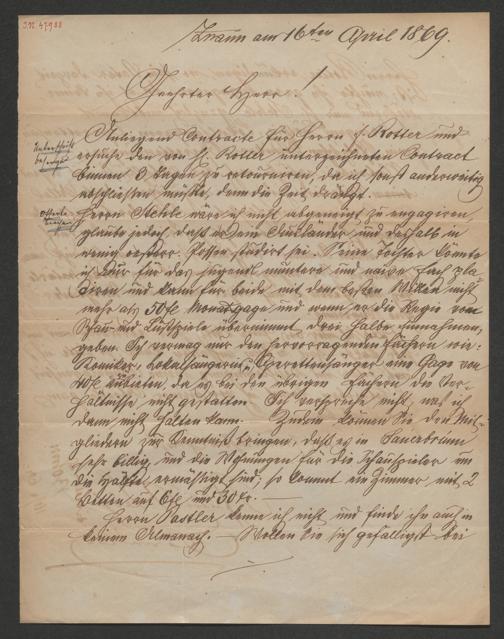 I.N. 47.988
Znaim am 16ten April 1869.
Geehrter Herr!
Anliegend Contracte für Herrn J. Rotter und
ersuche den von H. Rotter unterzeichneten Contract
binnen 3 Tagen zu retourniren, da ich sonst anderweitig
abschließen müßte, denn die Zeit drängt.
Herrn Stehle wäre ich nicht abgeneigt zu engagiren,
glaube jedoch, daß er dem Ausländer und deshalb in
wenig österr. Possen studirt sei. Seine Tochter könnte
ich nur für das jugendl. muntere und naive Fach pla-
ciren und kann für beide mit dem besten Willen nicht
mehr als 50 fl. Monatgage und wenn er die Regie von
Schau- und Lustspiele übernimmt, drei halbe Einnahmen,
geben. Ich vermag nur den hervorragenden Fächern wie:
Komiker, Lokalsängerin, Operettensänger eine Gage von
da es bei den übrigen Fächern die Ver-
hältnisse nicht gestatten. Ich verspreche nicht, was ich
dann nicht halten kann. Zudem können Sie den Mit-
gliedern zur Kenntniß bringen, daß es in Sauerbrunn
sehr billig und die Wohnungen für die Schauspieler um
die Hälfte ermäßigt sind, so kommt ein Zimmer mit 2
Betten auf 6 fl. und 30 kr.
Herrn Pastler kenne ich nicht und finde ihn auch in
keinem Almanach. — Wollen Sie sich gefälligst bei